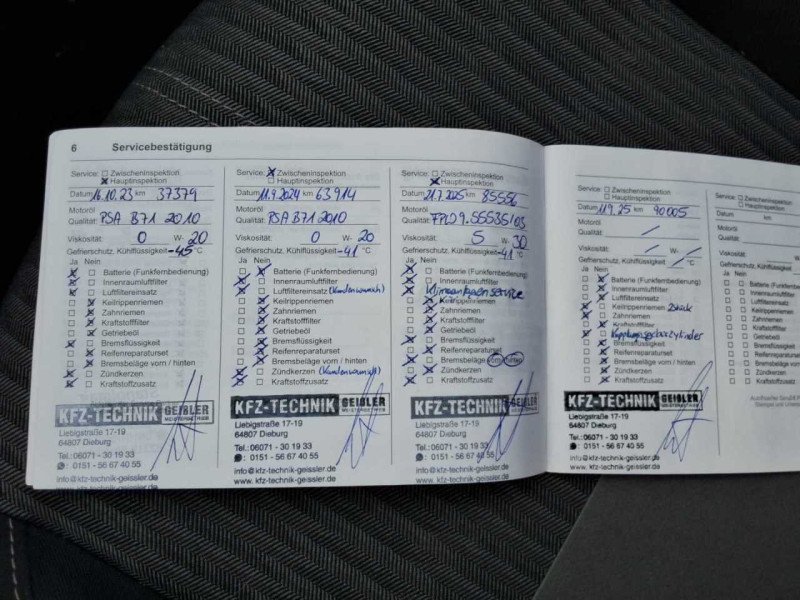 6 Servicebestätigung
Service: Zwischeninspektion
Hauptinspektion
Datum 16.10.23 km 37379
Motoröl
Qualität: PSA B71 2010
Viskosität: 0 W- 20
Gefrierschutz, Kühlflüssigkeit -45 °C
Ja Nein
Batterie (Funkfernbedienung)
Innenraumluftfilter
Luftfiltereinsatz
Keilrippenriemen
Zahnriemen
Kraftstofffilter
Getriebeöl
Bremsflüssigkeit
Reifenreparaturset
Bremsbeläge vorn / hinten
Zündkerzen
Kraftstoffzusatz
KFZ-TECHNIK GEIßLER
MEISTERBETRIEB
Liebigstraße 17-19
64807 Dieburg
Tel.:06071 - 30 19 33
0151 - 56 67 40 55
info@kfz-technik-geissler.de
www.kfz-technik-geissler.de
Service: Zwischeninspektion
Hauptinspektion
Datum 11.9.2024 km 63914
Motoröl
Qualität: PSA B71 2010
Viskosität: 0 W- 20
Gefrierschutz, Kühlflüssigkeit -41 °C
Ja Nein
Batterie (Funkfernbedienung)
Innenraumluftfilter
Luftfiltereinsatz (Kundenwunsch)
Keilrippenriemen
Zahnriemen
Kraftstofffilter
Getriebeöl
Bremsflüssigkeit
Reifenreparaturset
Bremsbeläge vorn / hinten
Zündkerzen (Kundenwunsch)
Kraftstoffzusatz
KFZ-TECHNIK GEIßLER
MEISTERBETRIEB
Liebigstraße 17-19
64807 Dieburg
Tel.:06071 - 30 19 33
0151 - 56 67 40 55
info@kfz-technik-geissler.de
www.kfz-technik-geissler.de
Service: Zwischeninspektion
Hauptinspektion
Datum 21.7.2025 km 85556
Motoröl
Qualität: FPD29.55535/03
Viskosität: 5 W- 30
Gefrierschutz, Kühlflüssigkeit -41 °C
Ja Nein
Batterie (Funkfernbedienung)
Innenraumluftfilter
Klimaanlagenservice
Keilrippenriemen
Zahnriemen
Kraftstofffilter
Getriebeöl
Bremsflüssigkeit
Reifenreparaturset
Bremsbeläge vorn / hinten
Zündkerzen
Kraftstoffzusatz
KFZ-TECHNIK GEIßLER
MEISTERBETRIEB
Liebigstraße 17-19
64807 Dieburg
Tel.:06071 - 30 19 33
0151 - 56 67 40 55
info@kfz-technik-geissler.de
www.kfz-technik-geissler.de
Service: Zwischeninspektion
Hauptinspektion
Datum 11.9.25 km 90005
Motoröl
Qualität: /
Viskosität: / W- /
Gefrierschutz, Kühlflüssigkeit / °C
Ja Nein
Batterie (Funkfernbedienung)
Innenraumluftfilter
Luftfiltereinsatz
Keilrippenriemen 2 Stück
Zahnriemen
Kraftstofffilter
Kupplungsgeberzylinder
Bremsflüssigkeit
Reifenreparaturset
Bremsbeläge vorn / hinten
Zündkerzen
Kraftstoffzusatz
KFZ-TECHNIK GEIßLER
MEISTERBETRIEB
Liebigstraße 17-19
64807 Dieburg
Tel.:06071 - 30 19 33
0151 - 56 67 40 55
info@kfz-technik-geissler.de
www.kfz-technik-geissler.de
Service:
Datum km
Motoröl
Qualität:
Viskosität:
Gefrierschutz
Ja Nein